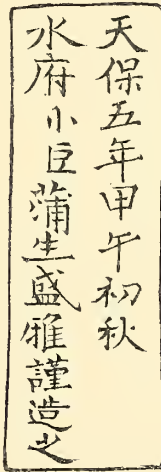 天保五年甲午初秋
水府小臣蒲生盛雅謹造之